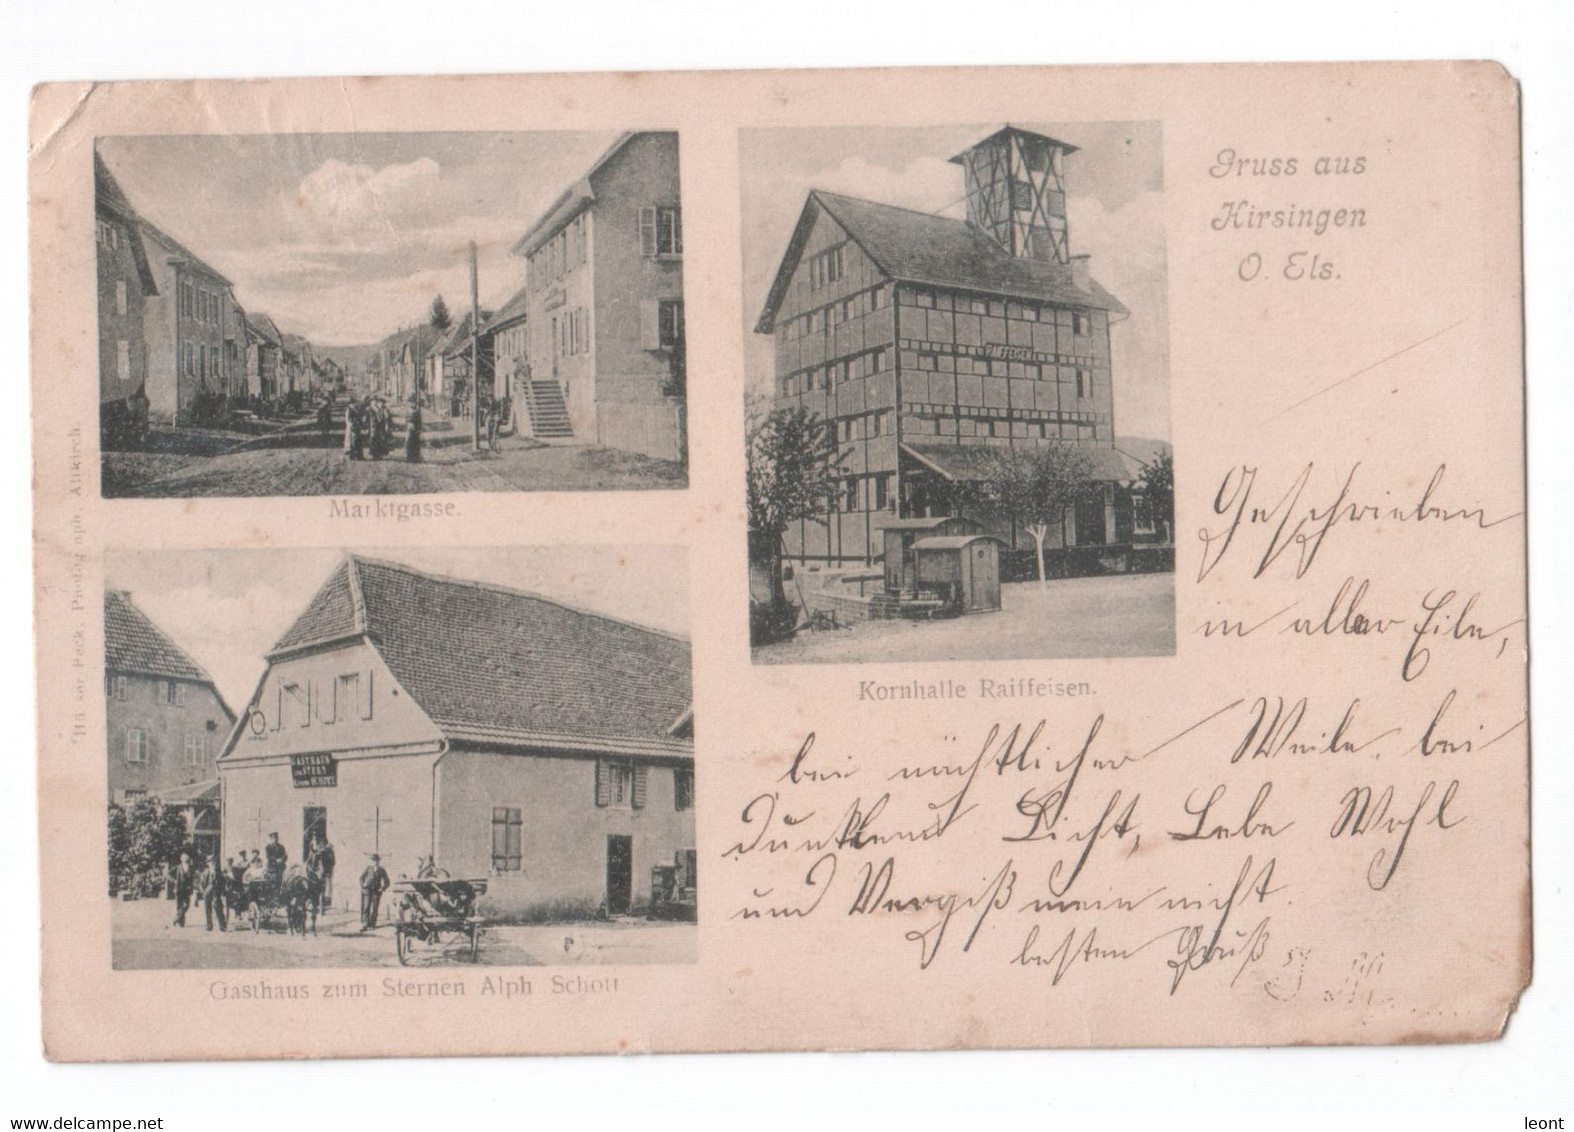 Gruss aus
Hirsingen
O. Els.
Marktgasse.
Kornhalle Raiffeisen.
RAIFFEISEN
GASTHAUS
ZUM STERN
SCHOTT
Gasthaus zum Sternen Alph Schott
Heck, Photograph, Altkirch.
Geschrieben
in aller Eile,
bei nächtlicher Weile, bei
Dunklem Licht, Lebe Wohl
und Vergiß mein nicht.
besten Gruß
delcampe.net
leont